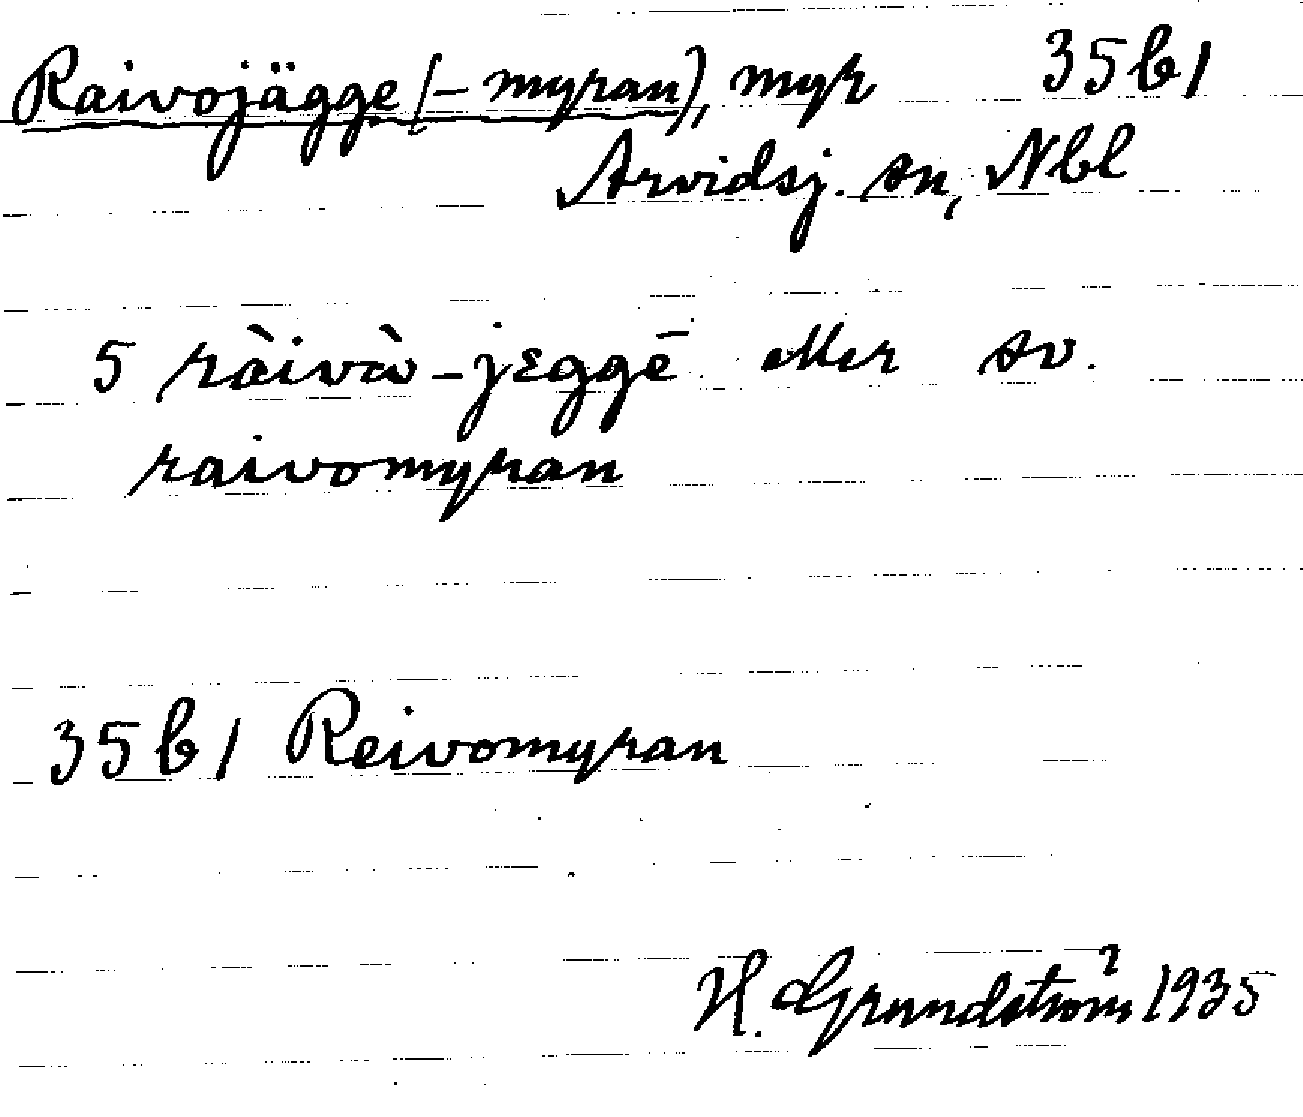 Raivojägge (-myran), myr 35b1
Arvidsj. sn, Nbl
5 ràivὼ-jɛggē eller sv.
raivomyran
35b1 Reivomyran
H. Grundström 1935